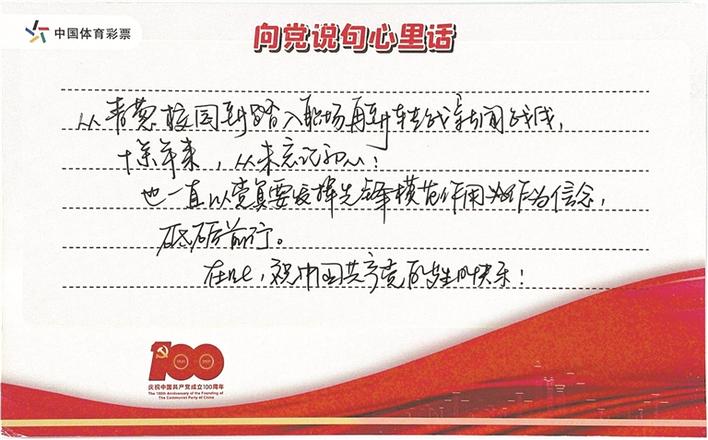 中国体育彩票
向党说句心里话
从青葱校园到踏入职场再到转战新闻战线，
十余年来，从未忘记初心！
也一直以党员要发挥先锋模范作用为作为信念，
砥砺前行。
在此，祝中国共产党的生日快乐！
100
庆祝中国共产党成立100周年
The 100th Anniversary of the Founding of
The Communist Party of China